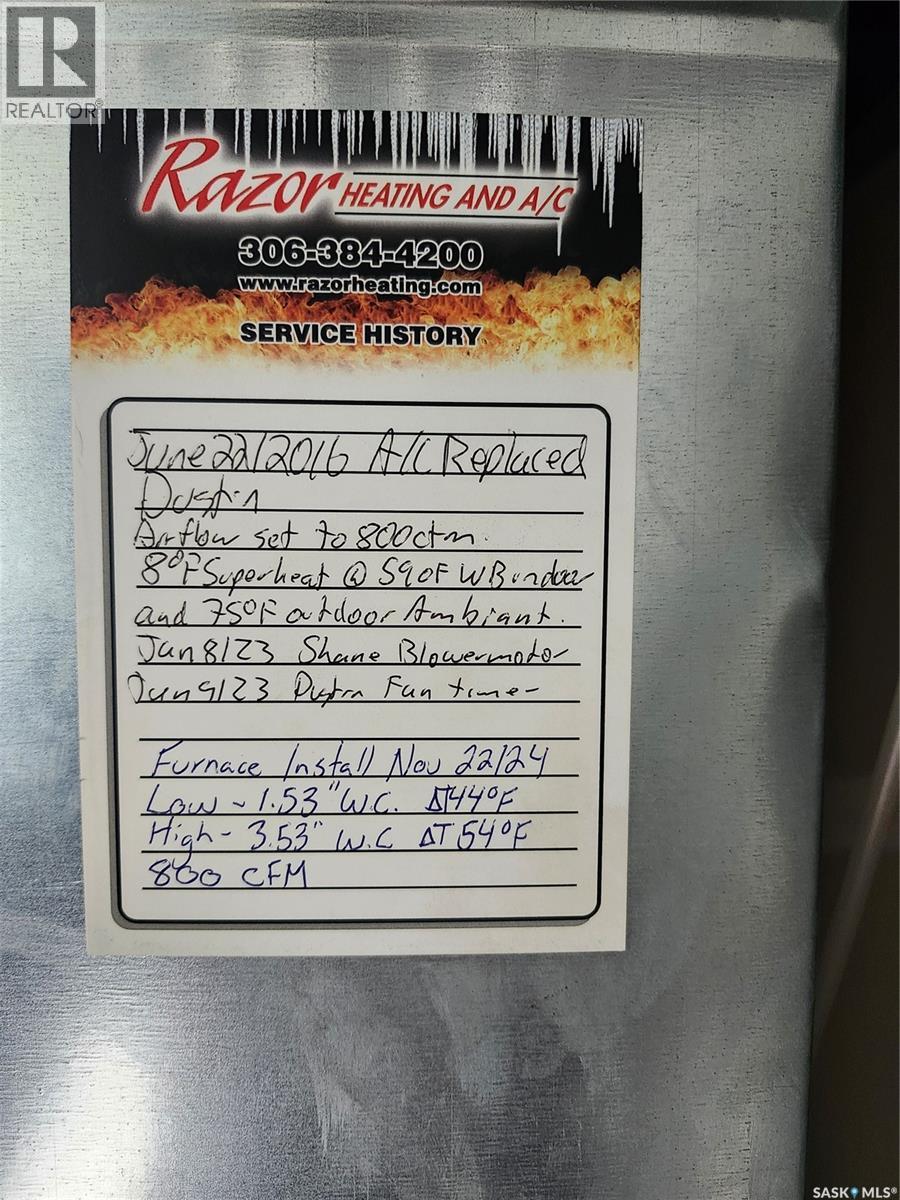 REALTOR®
Razor HEATING AND A/C
306-384-4200
www.razorheating.com
SERVICE HISTORY
June 22/2016 A/C Replaced
Dustin
Airflow set to 800cfm.
8°F Superheat @ 59°F WB indoor
and 75°F outdoor Ambiant.
Jan 8/23 Shane Blowermotor
Jan 9/23 Dustin Fan timer
Furnace Install Nov 22/24
Low - 1.53" W.C. ΔT44°F
High - 3.53" W.C ΔT 54°F
800 CFM
SASK MLS®